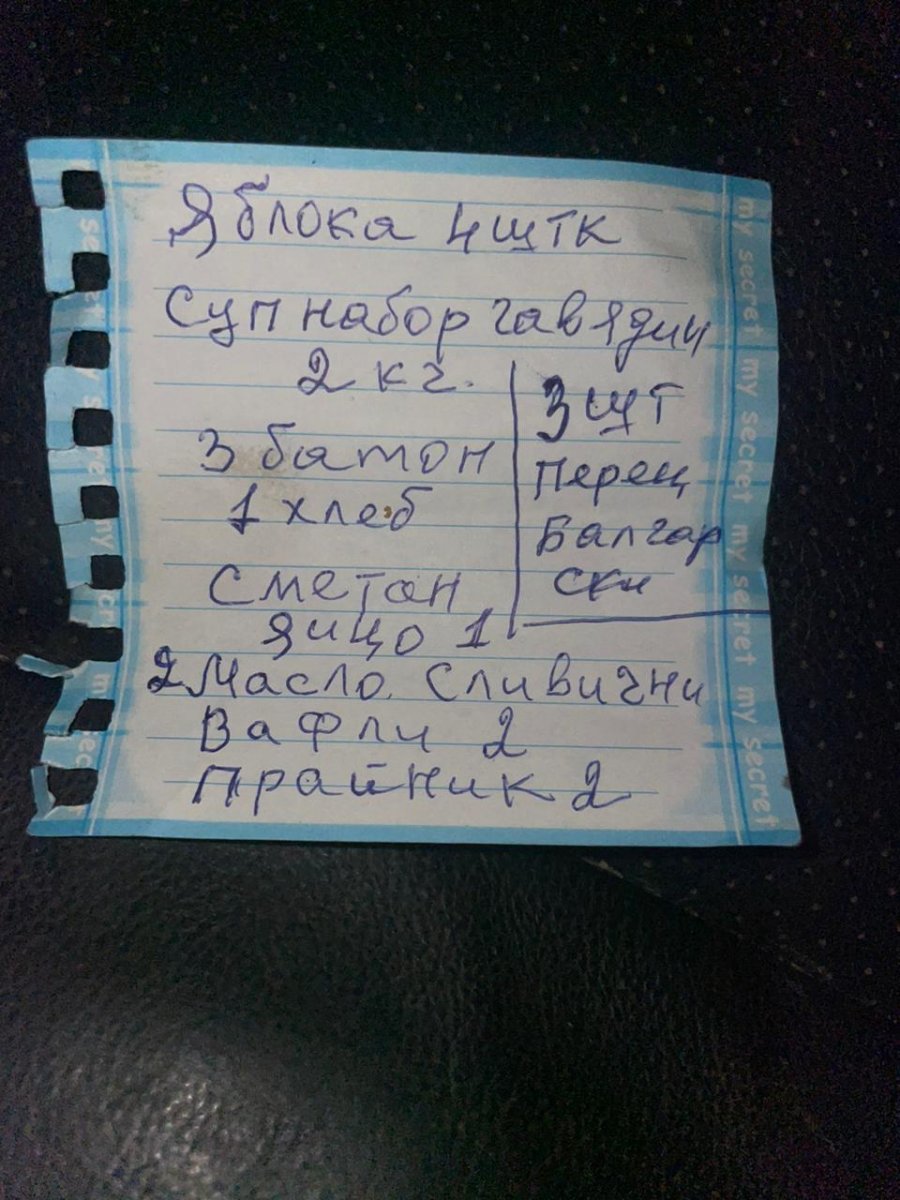 Яблока 4штк
Суп набор гавядин
2 кг.
3 батон
1 хлеб
Сметан
Яицо 1
3 шт
Перец
Балгар
ски
2 Масло. Сливични
Вафли 2
Прайник 2
my secret my secret my secret my secret